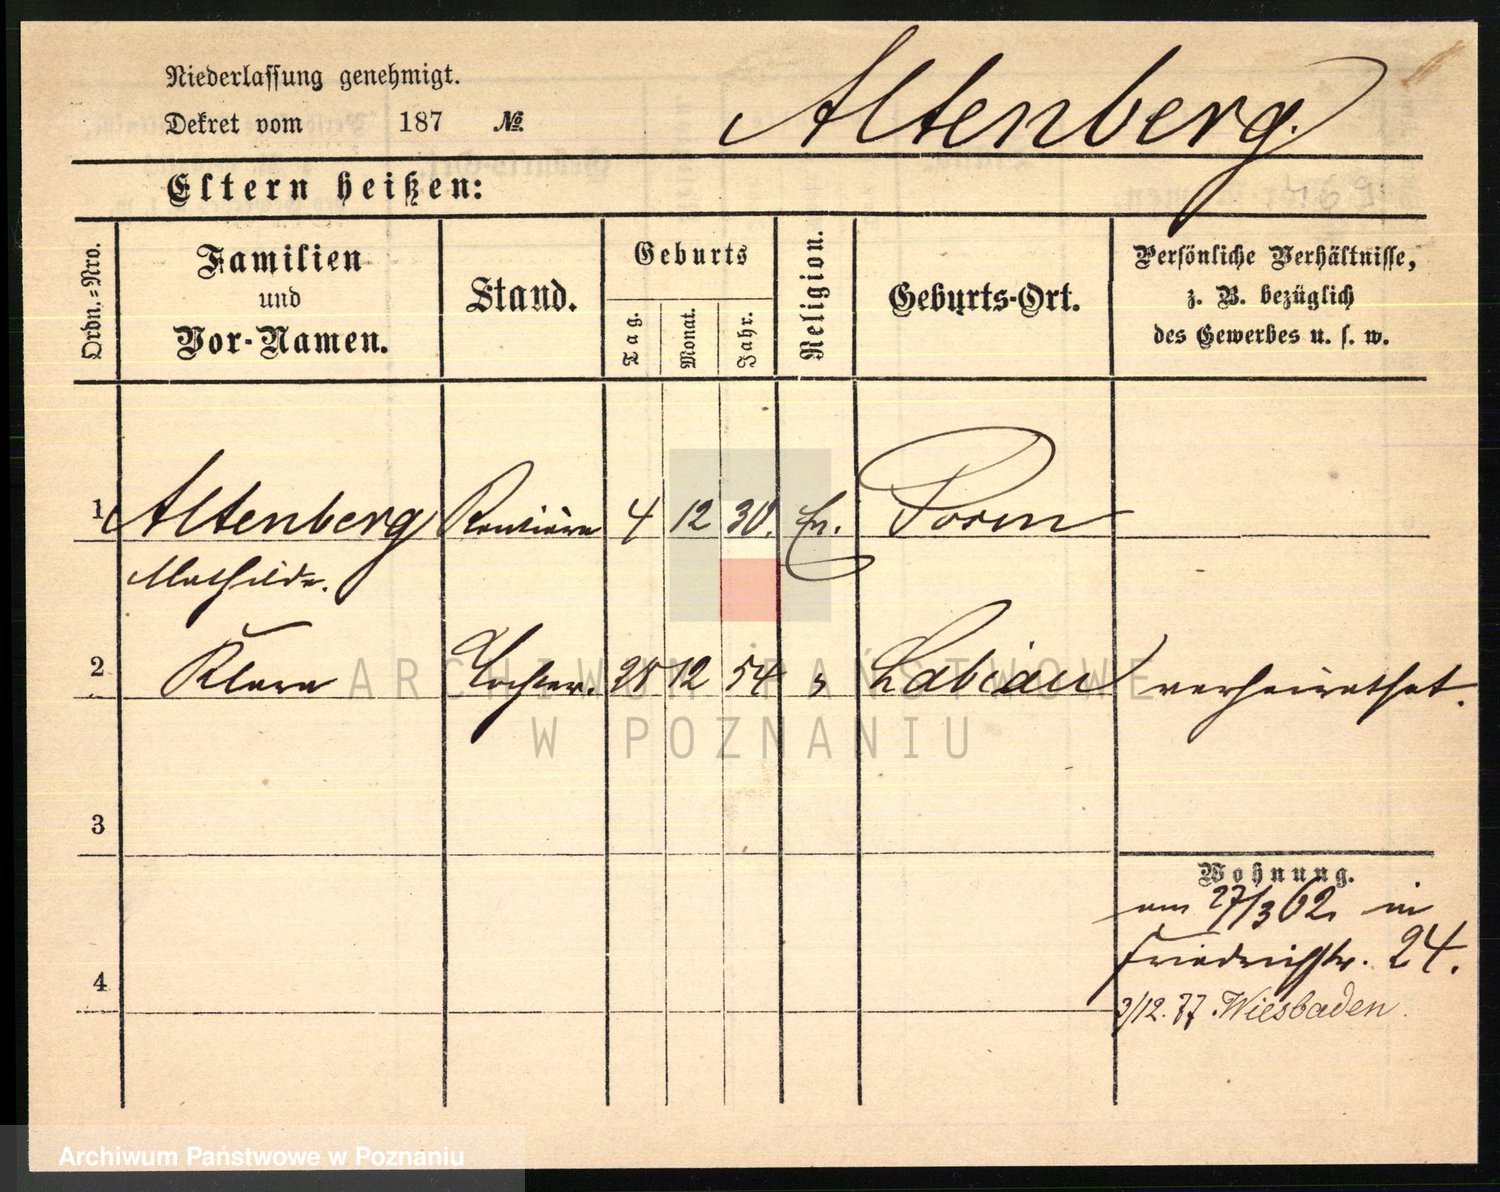 Niederlassung genehmigt.
Dekret vom 187 №
Altenberg.
Eltern heißen:
169
Ordn.=Nro.
Familien
und
Vor-Namen.
Stand.
Geburts
Tag.
Monat.
Jahr.
Religion.
Geburts-Ort.
Persönliche Verhältnisse,
z. B. bezüglich
des Gewerbes u. s. w.
1 Altenberg Rentière 4 12 30. Ev. Posen
Mathilde.
2 Klara Tochter. 28 12 54 " Labiau verheirathet.
3
4
Wohnung.
am 27/3 62. in
Friedrichstr. 24.
3/12. 77 Wiesbaden.
ARCHIWUM PAŃSTWOWE
W POZNANIU
Archiwum Państwowe w Poznaniu